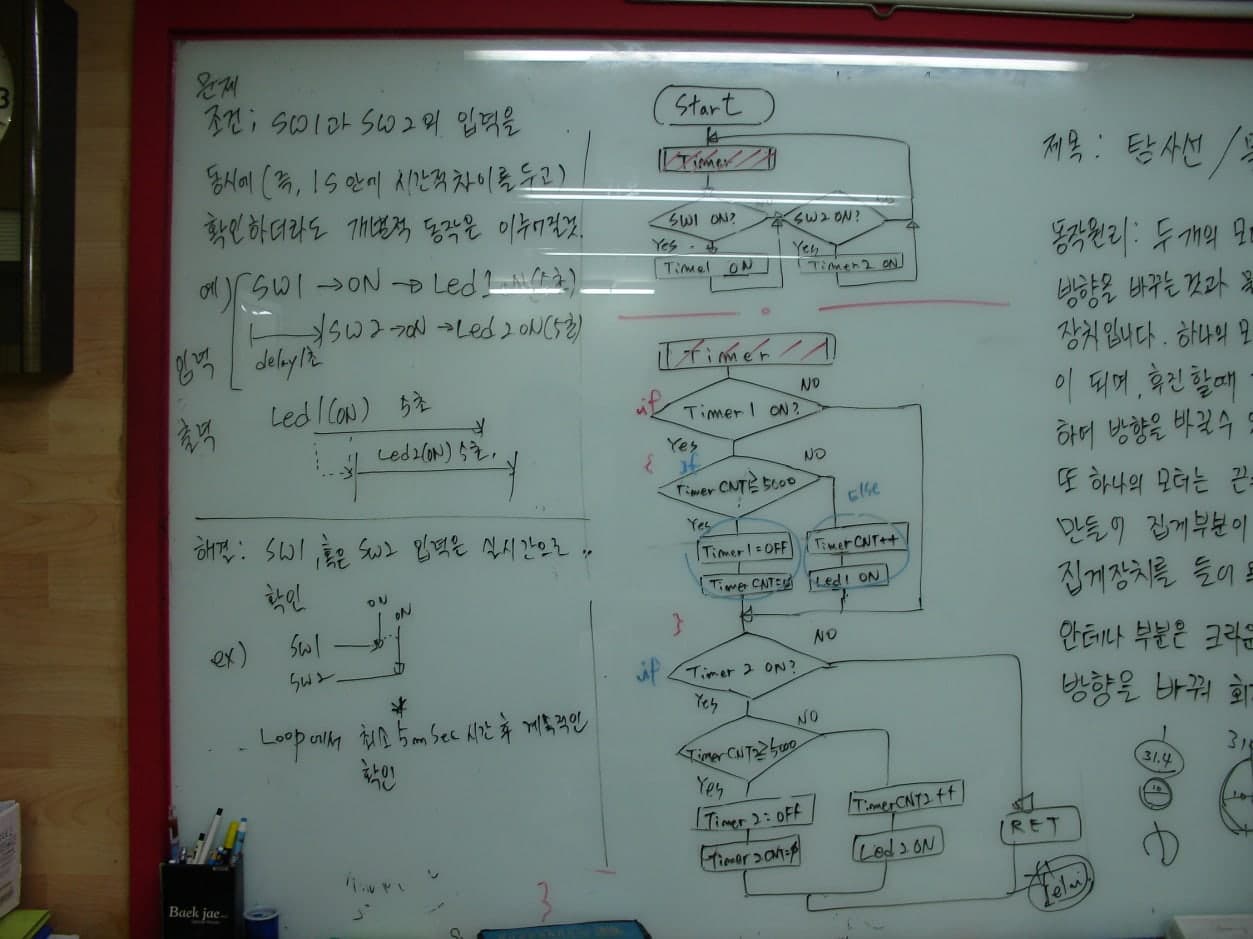 문제
조건; SW1과 SW2의 입력을
동시에 (즉, 1S 안에 시간적 차이를 두고)
확인하더라도 개별적 동작은 이루어질것.
예) SW1 → ON → Led 1 ON(5초)
SW2 → ON → Led 2 ON(5초)
delay 1초
입력
출력
Led 1 (ON) 5초
Led2(ON) 5초
해결: SW1, 혹은 SW2 입력은 실시간으로
확인
ex)
ON
ON
SW1
SW2
Loop에서 최소 5mSec 시간 후 계속적인
확인
Start
Timer
SW1 ON?
SW2 ON?
Yes
Yes
Time1 ON
Timer 2 ON
Timer
if
Timer 1 ON?
NO
Yes
{
if
Timer CNT≥5000
NO
else
Yes
Timer 1 = OFF
Timer CNT++
Timer CNT=0
Led 1 ON
}
if
Timer 2 ON?
NO
Yes
Timer CNT2≥5000
NO
Yes
Timer 2 = OFF
Timer CNT2 ++
Timer 2 CNT=0
Led 2 ON
RET
}
제목: 탐사선 /
동작원리: 두 개의
방향을 바꾸는것과
장치입니다. 하나의
이 되며, 후진할때
하여 방향을 바꿀수
또 하나의 모터는
만들어 집게부분이
집게장치를 들어
안테나 부분은
방향을 바꿔
31.4
10
Baek jae
3